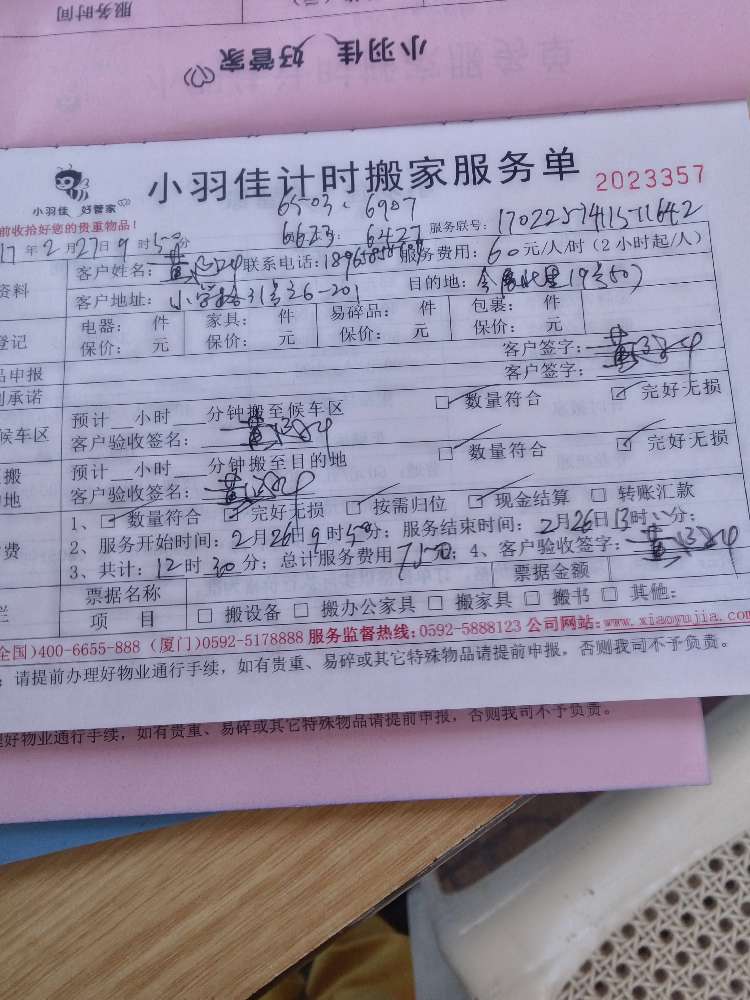 服务时间
小羽佳 好管家
小羽佳 好管家
小羽佳计时搬家服务单
2023357
6503. 6907
前收拾好您的贵重物品!
6623. 6427 服务联号:
17年2月27日9时50分
客户姓名: 联系电话: 服务费用:60元/人/时(2小时起/人)
资料
客户地址:小学路31号之6-201 目的地:
登记
电器: 件 家具: 件 易碎品: 件 包裹: 件
保价: 元 保价: 元 保价: 元 保价: 元
品申报
客户签字:
承诺
客户签字:
候车区
预计 小时 分钟搬至候车区 数量符合 完好无损
客户验收签名:
搬
预计 小时 分钟搬至目的地 数量符合 完好无损
的地
客户验收签名:
费
1、 数量符合 完好无损 按需归位 现金结算 转账汇款
2、服务开始时间:2月26日9时50分; 服务结束时间:2月26日13时 分;
3、共计:12时30分; 总计服务费用 元; 4、客户验收签字:
票据名称 票据金额
栏
项 目 搬设备 搬办公家具 搬家具 搬书 其他:
全国)400-6655-888 (厦门)0592-5178888 服务监督热线:0592-5888123 公司网站:www.xiaoyujia.com
:请提前办理好物业通行手续,如有贵重、易碎或其它特殊物品请提前申报,否则我司不予负责。
理好物业通行手续,如有贵重、易碎或其它特殊物品请提前申报,否则我司不予负责。